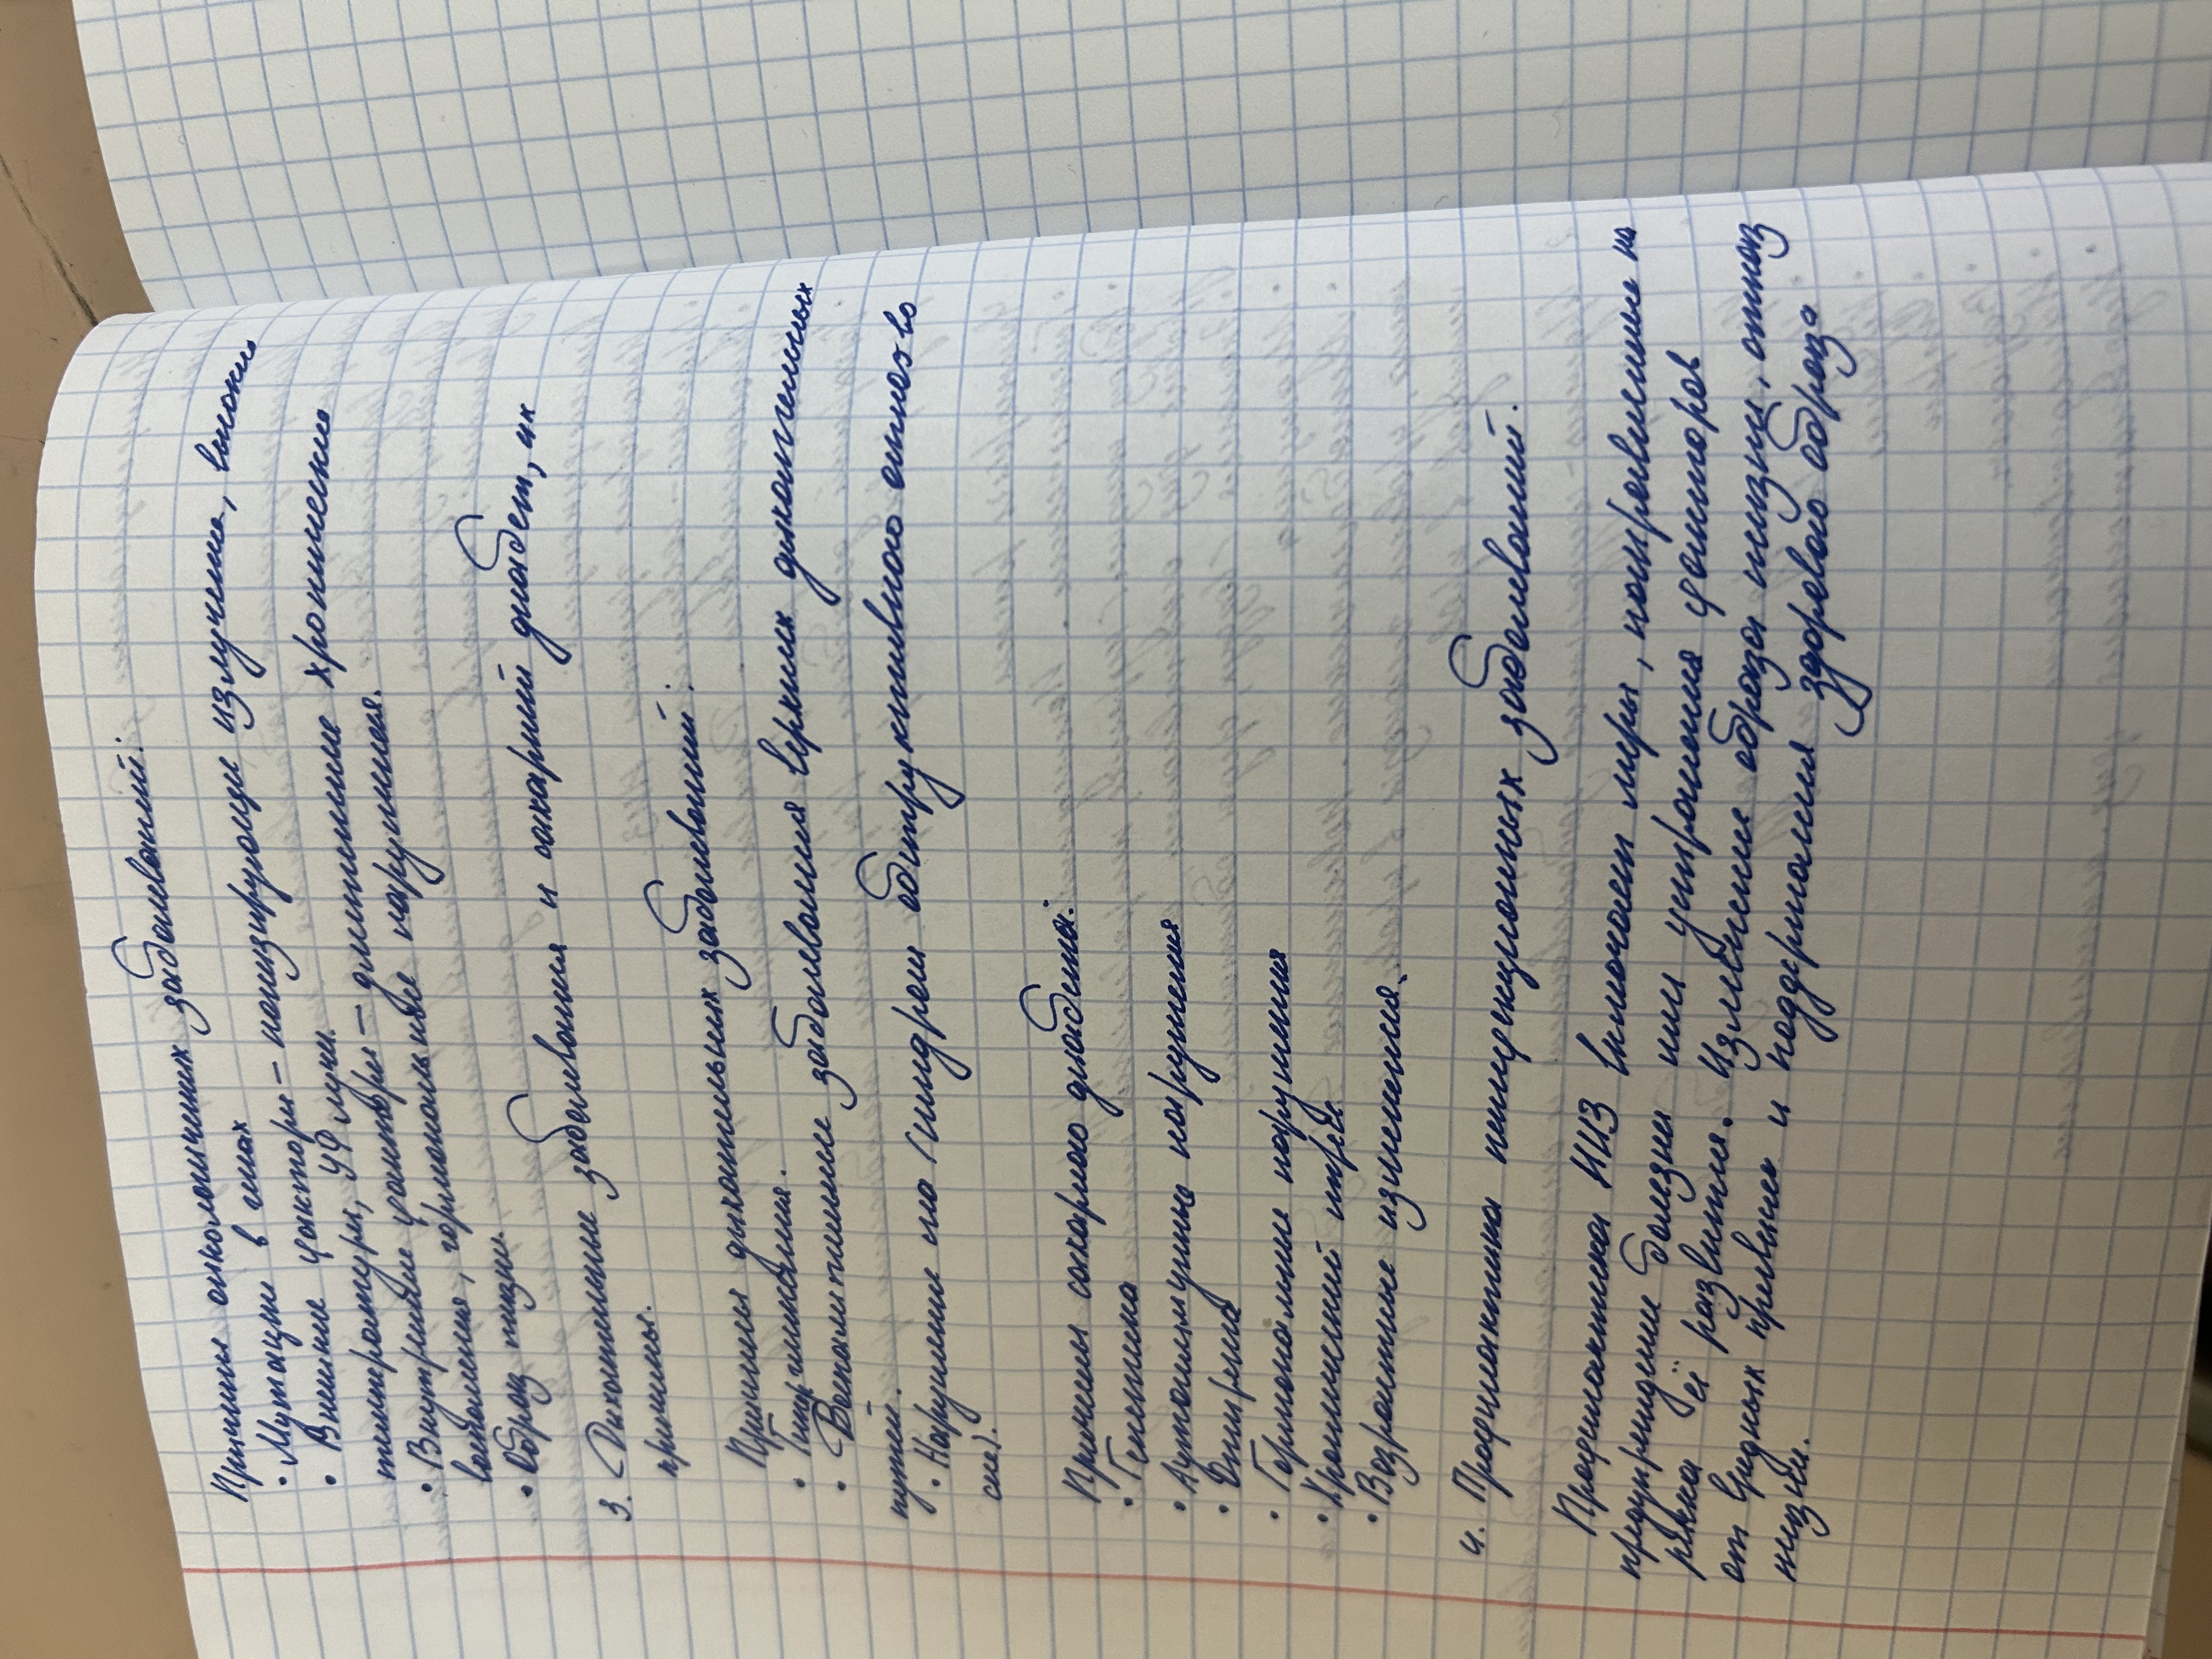 Причины онкологичних заболеваний:
• Мутации в генах
• Внешние факторы – ионизирующие излучение, высокие
температуры, УФ лучи.
• Внутренние факторы – длительные хронические
воспаления, гормональные нарушения.
• Образ жизни.
3. Дыхательные заболевания и сахарный диабет, их
причины.
Причины дыхательных заболеваний:
• Гипоксия.
• Воспаление заболевания верхних дыхательных
путей.
• Нарушение сна (синдром обструктивного апноэ во
сне).
Причины сахарного диабета:
• Генетика
• Аутоиммунные нарушения
• Ожирение
• Гормональные нарушения
• Хронический стресс
• Возрастные изменения.
4. Профилактика неинфекционных заболеваний.
Профилактика НИЗ включает меры, направленные на
предупреждение болезни или устранения факторов
риска её развития. Изменение образа жизни, отказ
от вредных привычек и поддержания здорового образа
жизни.